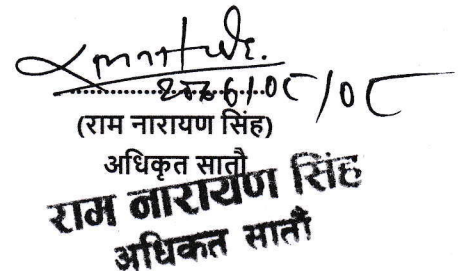 (राम नारायण सिंह)
अधिकृत सातौ
राम नारायण सिंह
अधिकत सातौं